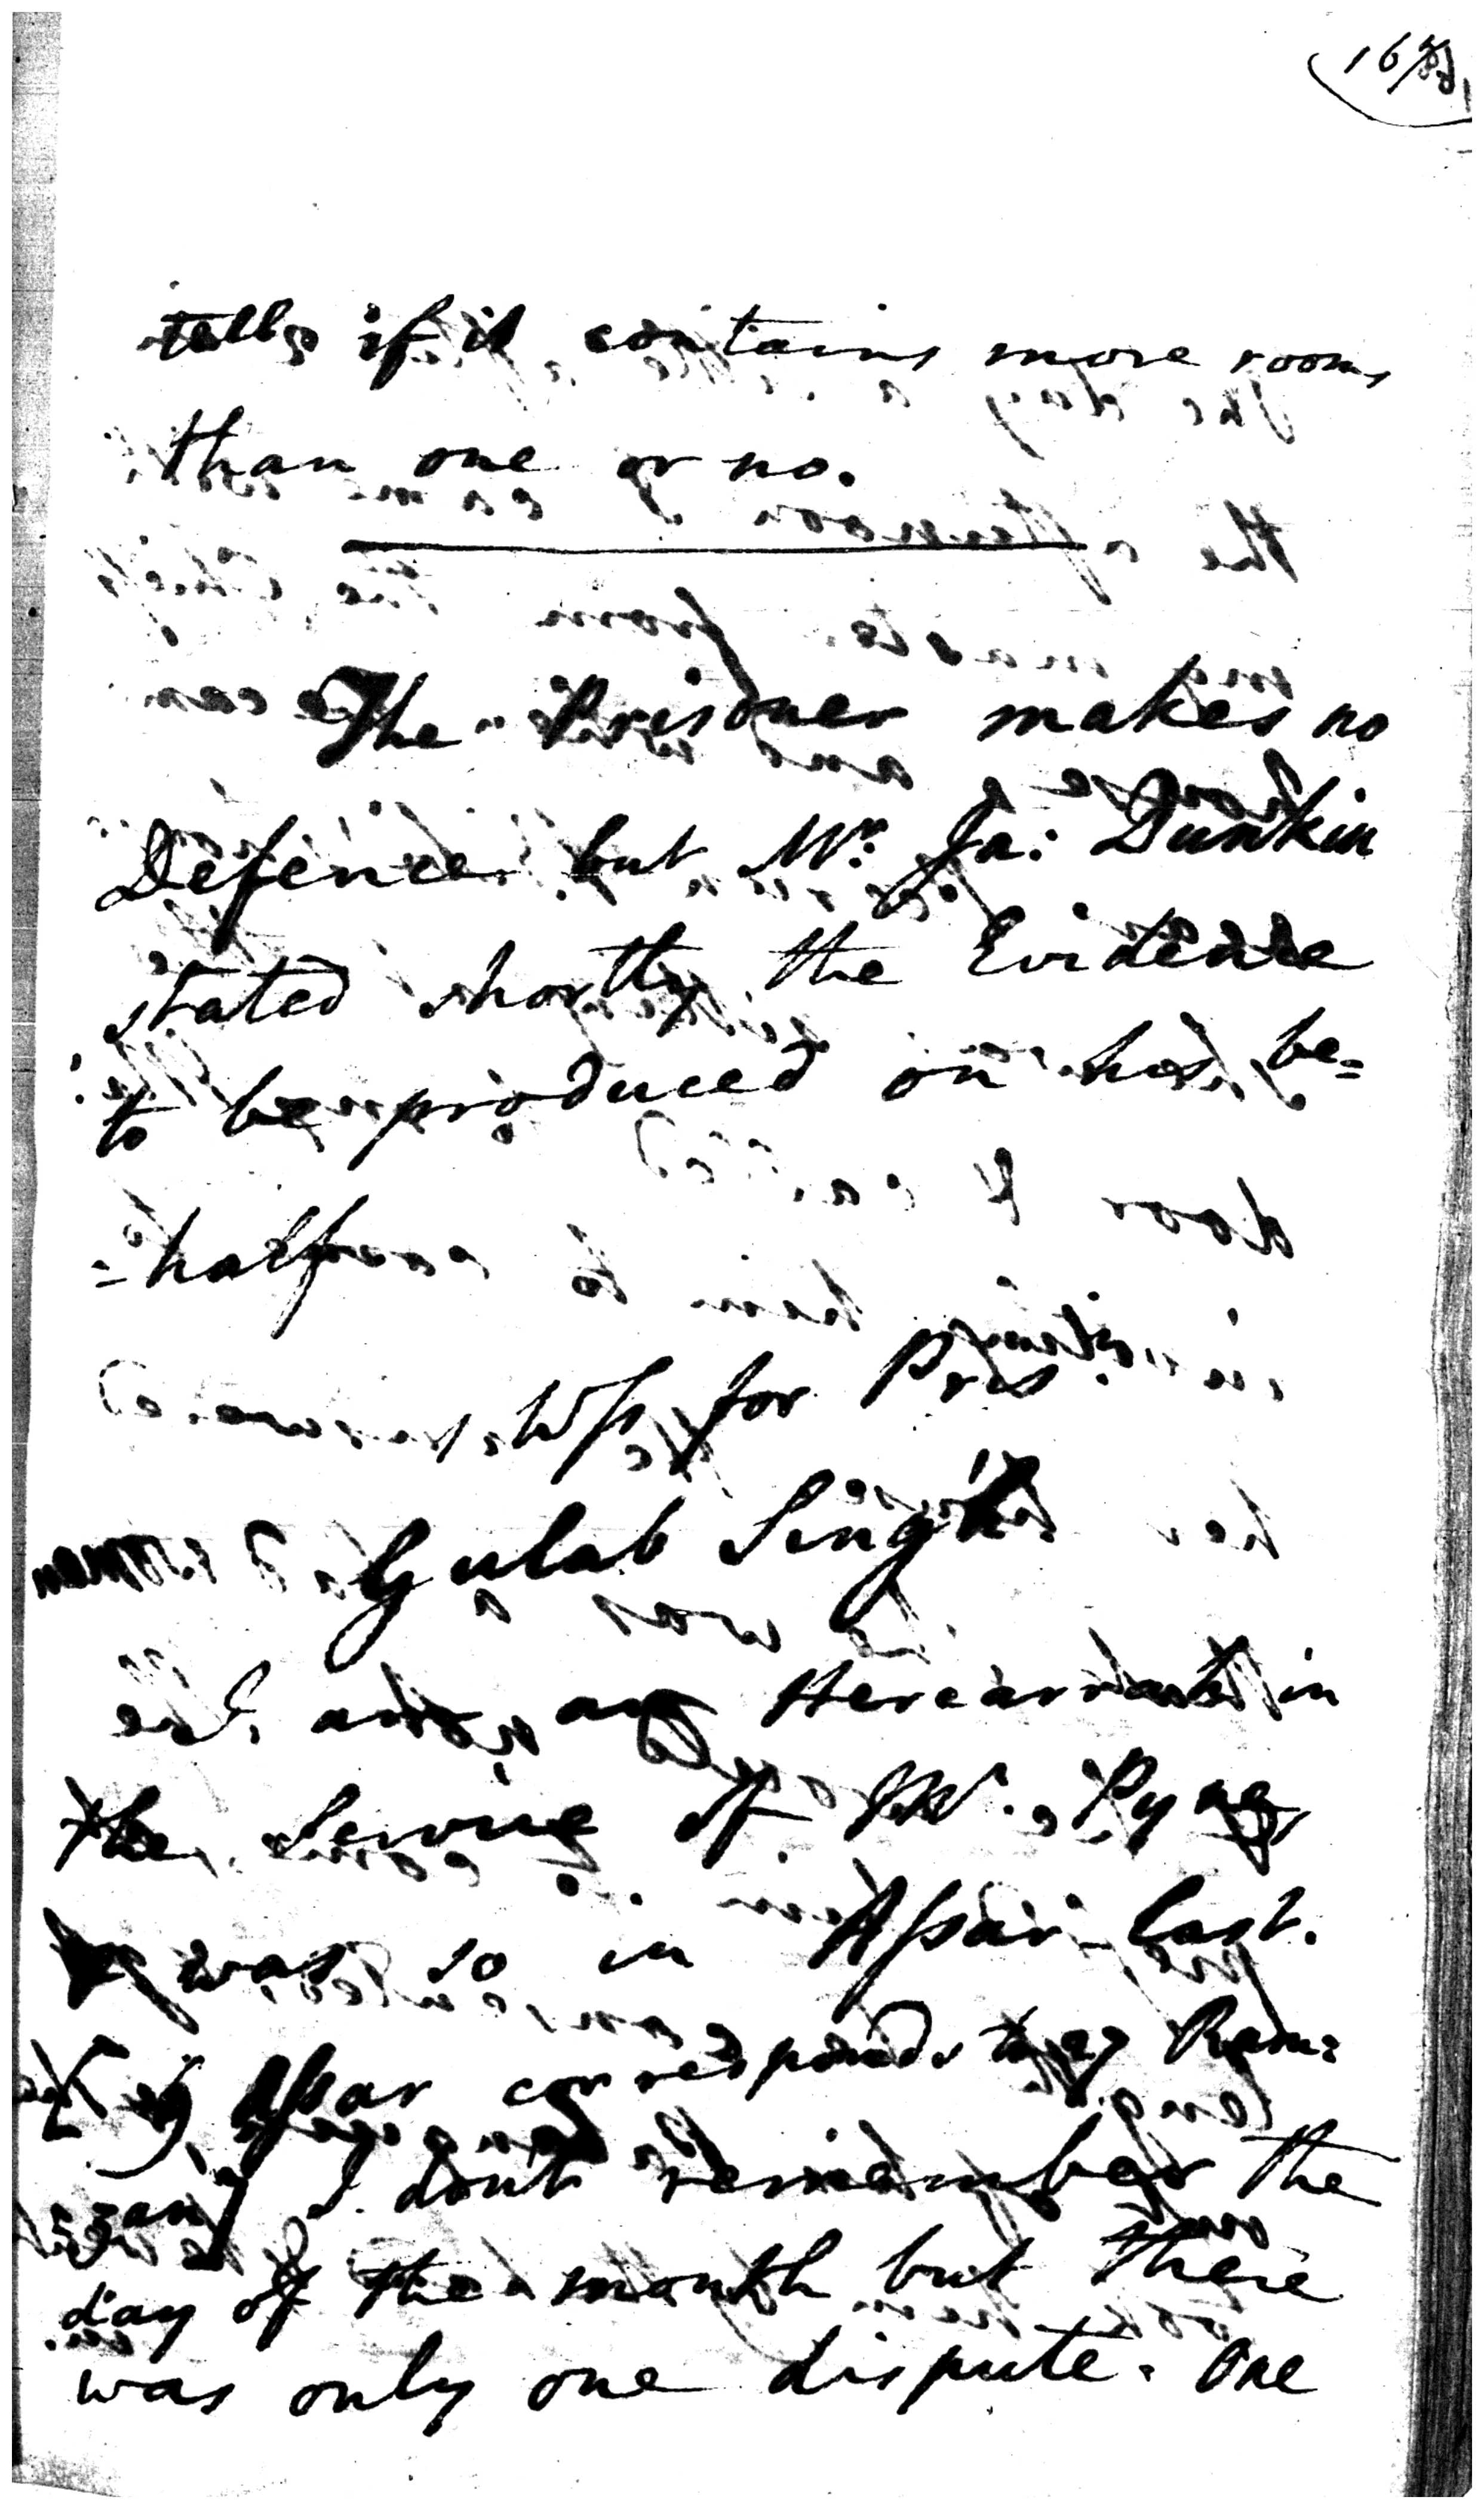 tell if it contains more rooms
than one or no.
The Prisoner makes no
Defence but Mr. Ja: Dunkin
stated shortly the Evidence
to be produced on his be=
=half
Wss for Pris
Gulab Sing
I am an Hercarrah in
the Service of Mr. Pyne
was so in Assar last.
Assar corresponds to Ram:
zan] I don't remember the
day of the month but there
was only one dispute. One